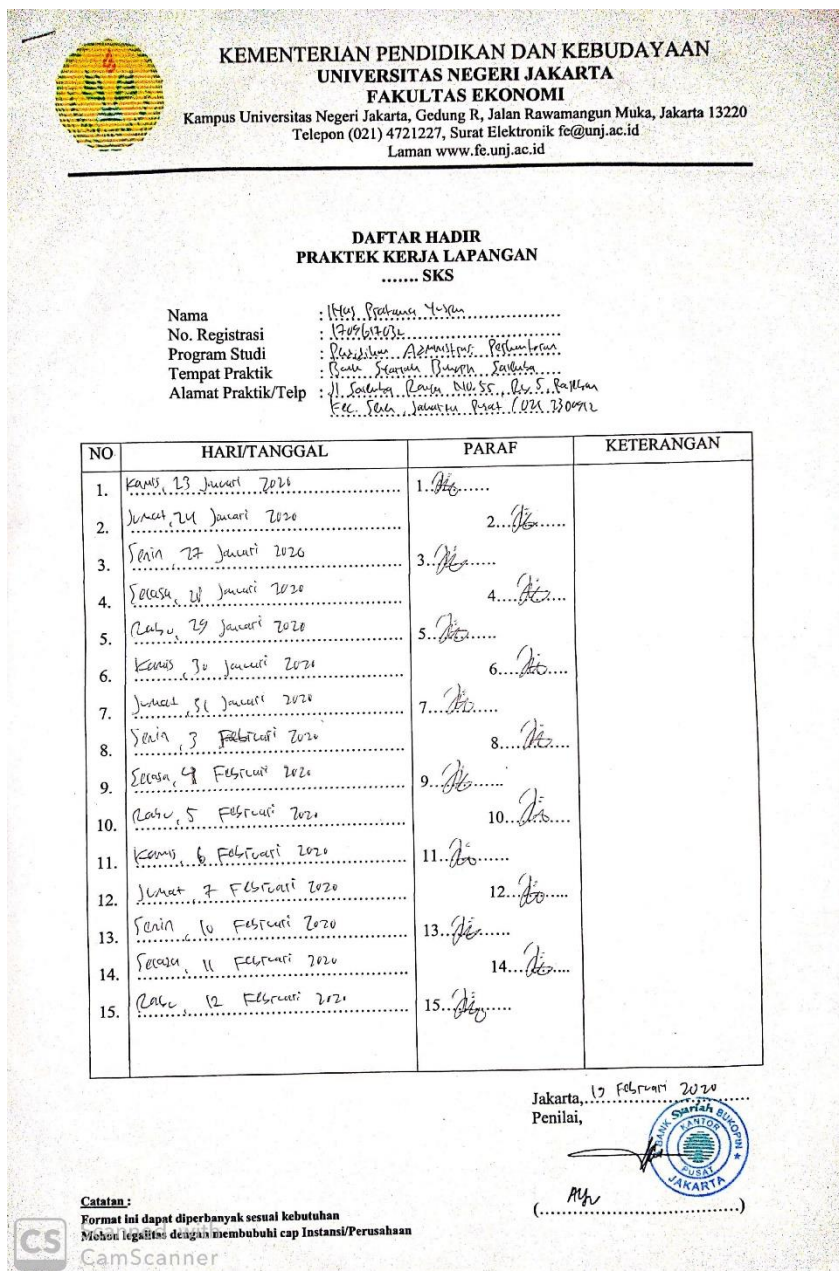 KEMENTERIAN PENDIDIKAN DAN KEBUDAYAAN
UNIVERSITAS NEGERI JAKARTA
FAKULTAS EKONOMI
Kampus Universitas Negeri Jakarta, Gedung R, Jalan Rawamangun Muka, Jakarta 13220
Telepon (021) 4721227, Surat Elektronik fe@unj.ac.id
Laman www.fe.unj.ac.id
DAFTAR HADIR
PRAKTEK KERJA LAPANGAN
....... SKS
Nama :
No. Registrasi : 1709617032
Program Studi : Pendidikan Administrasi Perkantoran
Tempat Praktik : Bank Syariah Bukopin Salemba
Alamat Praktik/Telp : Jl. Salemba Raya No. 55, Rw 5,
Kec. Senen, Jakarta Pusat
NO HARI/TANGGAL PARAF KETERANGAN
1. Kamis, 23 Januari 2020 1.
2. Jumat, 24 Januari 2020 2.
3. Senin 27 Januari 2020 3.
4. Selasa, 28 Januari 2020 4.
5. Rabu, 29 Januari 2020 5.
6. Kamis 30 Januari 2020 6.
7. Jumat, 31 Januari 2020 7.
8. Senin, 3 Februari 2020 8.
9. Selasa, 4 Februari 2020 9.
10. Rabu, 5 Februari 2020 10.
11. Kamis, 6 Februari 2020 11.
12. Jumat, 7 Februari 2020 12.
13. Senin, 10 Februari 2020 13.
14. Selasa, 11 Februari 2020 14.
15. Rabu, 12 Februari 2020 15.
Jakarta, Februari 2020
Penilai,
BANK Syariah BUKOPIN
KANTOR
PUSAT
JAKARTA
(..............................)
Catatan :
Format ini dapat diperbanyak sesuai kebutuhan
Mohon legalitas dengan membubuhi cap Instansi/Perusahaan
CS Scanned with
CamScanner